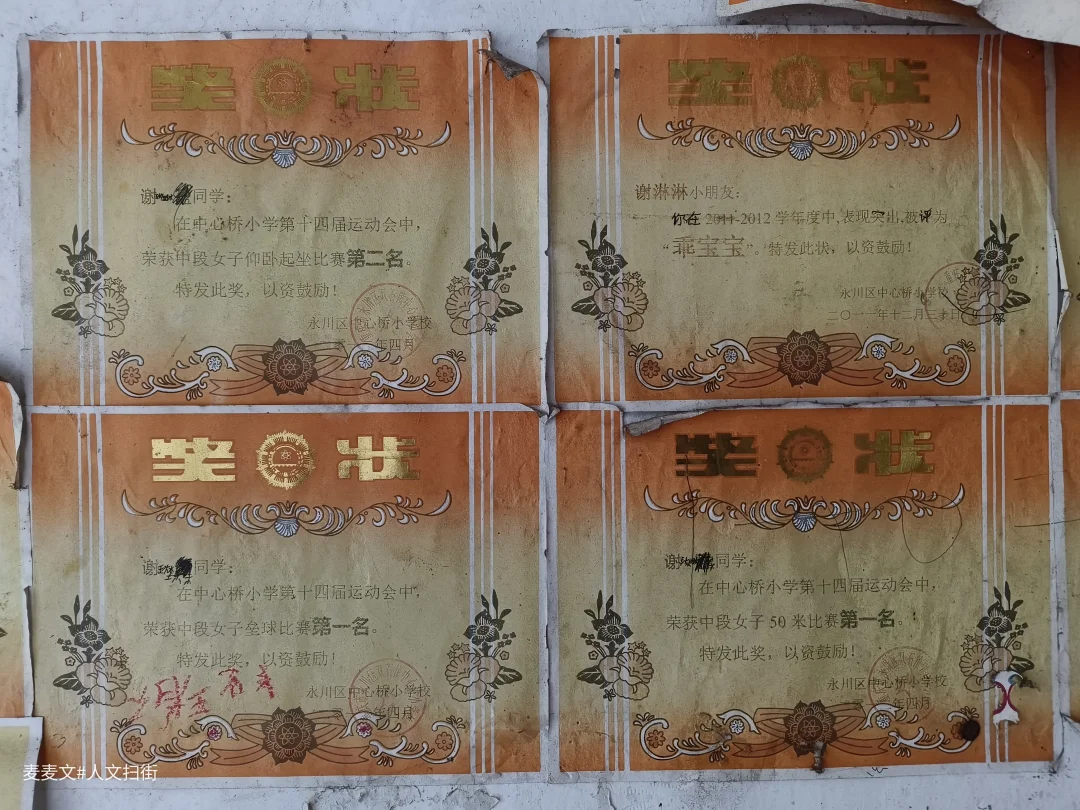 奖 状
谢 同学:
在中心桥小学第十四届运动会中,
荣获中段女子仰卧起坐比赛第二名。
特发此奖，以资鼓励！
永川区中心桥小学校
年四月
奖 状
谢淋淋小朋友:
你在 2011-2012 学年度中,表现突出,被评为
“乖宝宝”。特发此状，以资鼓励！
永川区中心桥小学校
二〇一一年十二月三十日
奖 状
谢 同学:
在中心桥小学第十四届运动会中,
荣获中段女子垒球比赛第一名。
特发此奖，以资鼓励！
永川区中心桥小学校
年四月
奖 状
谢 同学:
在中心桥小学第十四届运动会中,
荣获中段女子 50 米比赛第一名。
特发此奖，以资鼓励！
永川区中心桥小学校
年四月
麦麦文#人文扫街